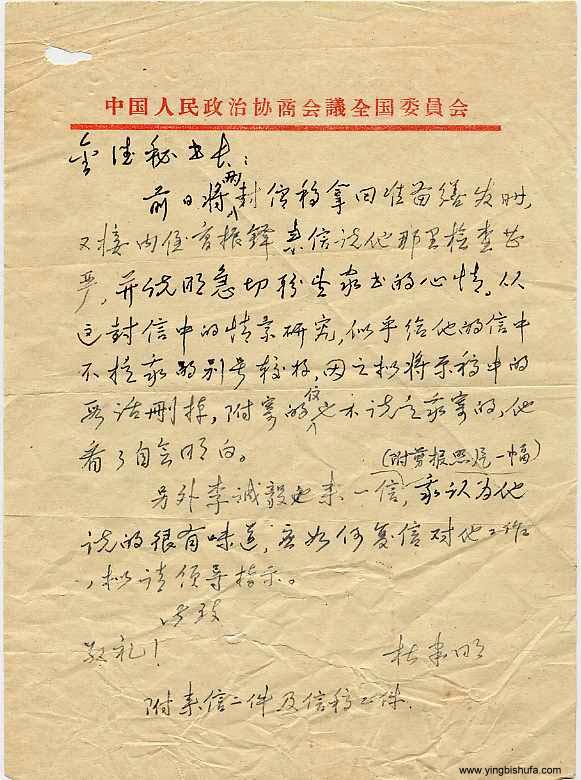 中国人民政治协商会議全国委員会
秘书长：
前日将两封信稿拿回准备缮发时，
又接内侄曹振鐸来信说他那里检查甚
严，并说明急切盼望家书的心情。从
这封信中的情景研究，似乎给他的信中
不提我的别号较好，因之拟将原稿中的
话删掉，附寄的信也未说是我寄的，他
看了自会明白。
(附剪报照片一幅)
另外李诚毅也来一信，我认为他
说的很有味道，应如何复信对他工作
，拟请领导指示。
此致
敬礼！
杜聿明
附来信二件及信稿二件.
www.yingbishufa.com